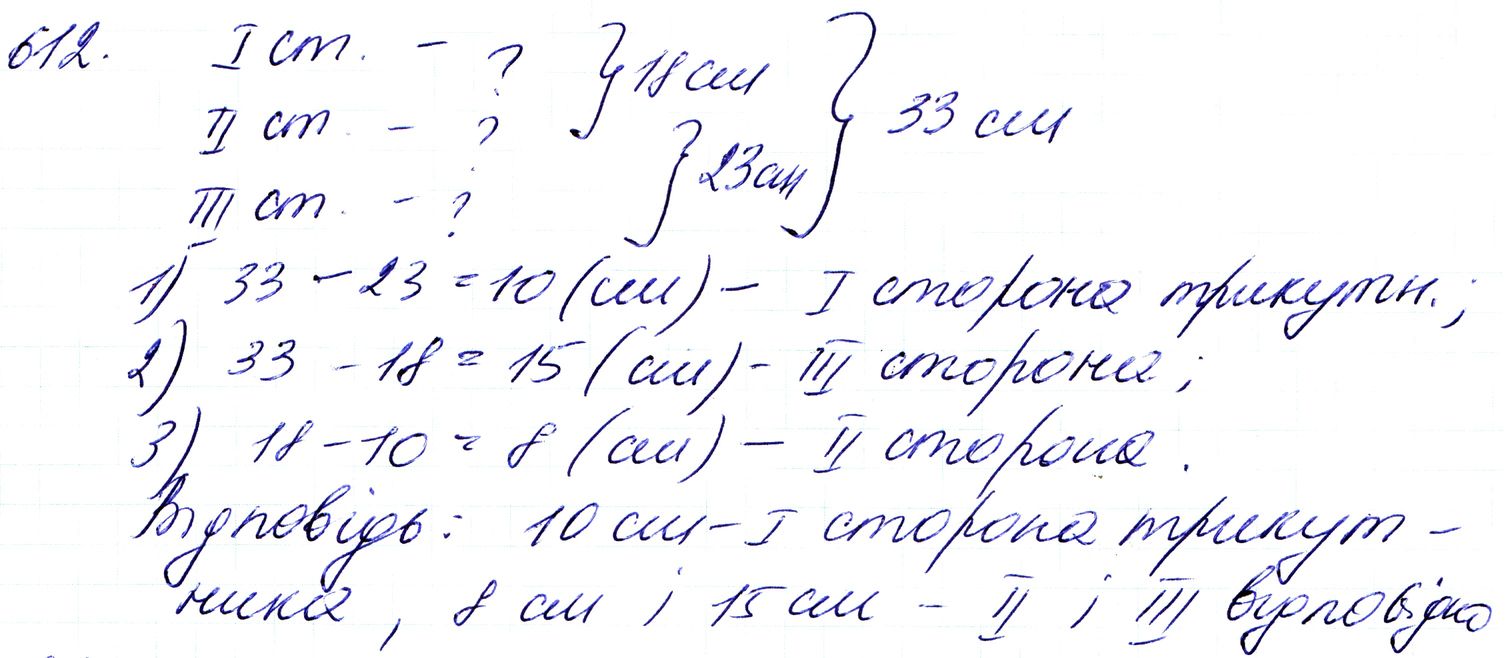 612. I ст. - ? } 18 см } 33 см
II ст. - ? } 23 см
III ст. - ?
1) 33 - 23 = 10 (см) - I сторона трикутн.;
2) 33 - 18 = 15 (см) - III сторона;
3) 18 - 10 = 8 (см) - II сторона.
Відповідь: 10 см - I сторона трикут-
ника, 8 см і 15 см - II і III відповідно